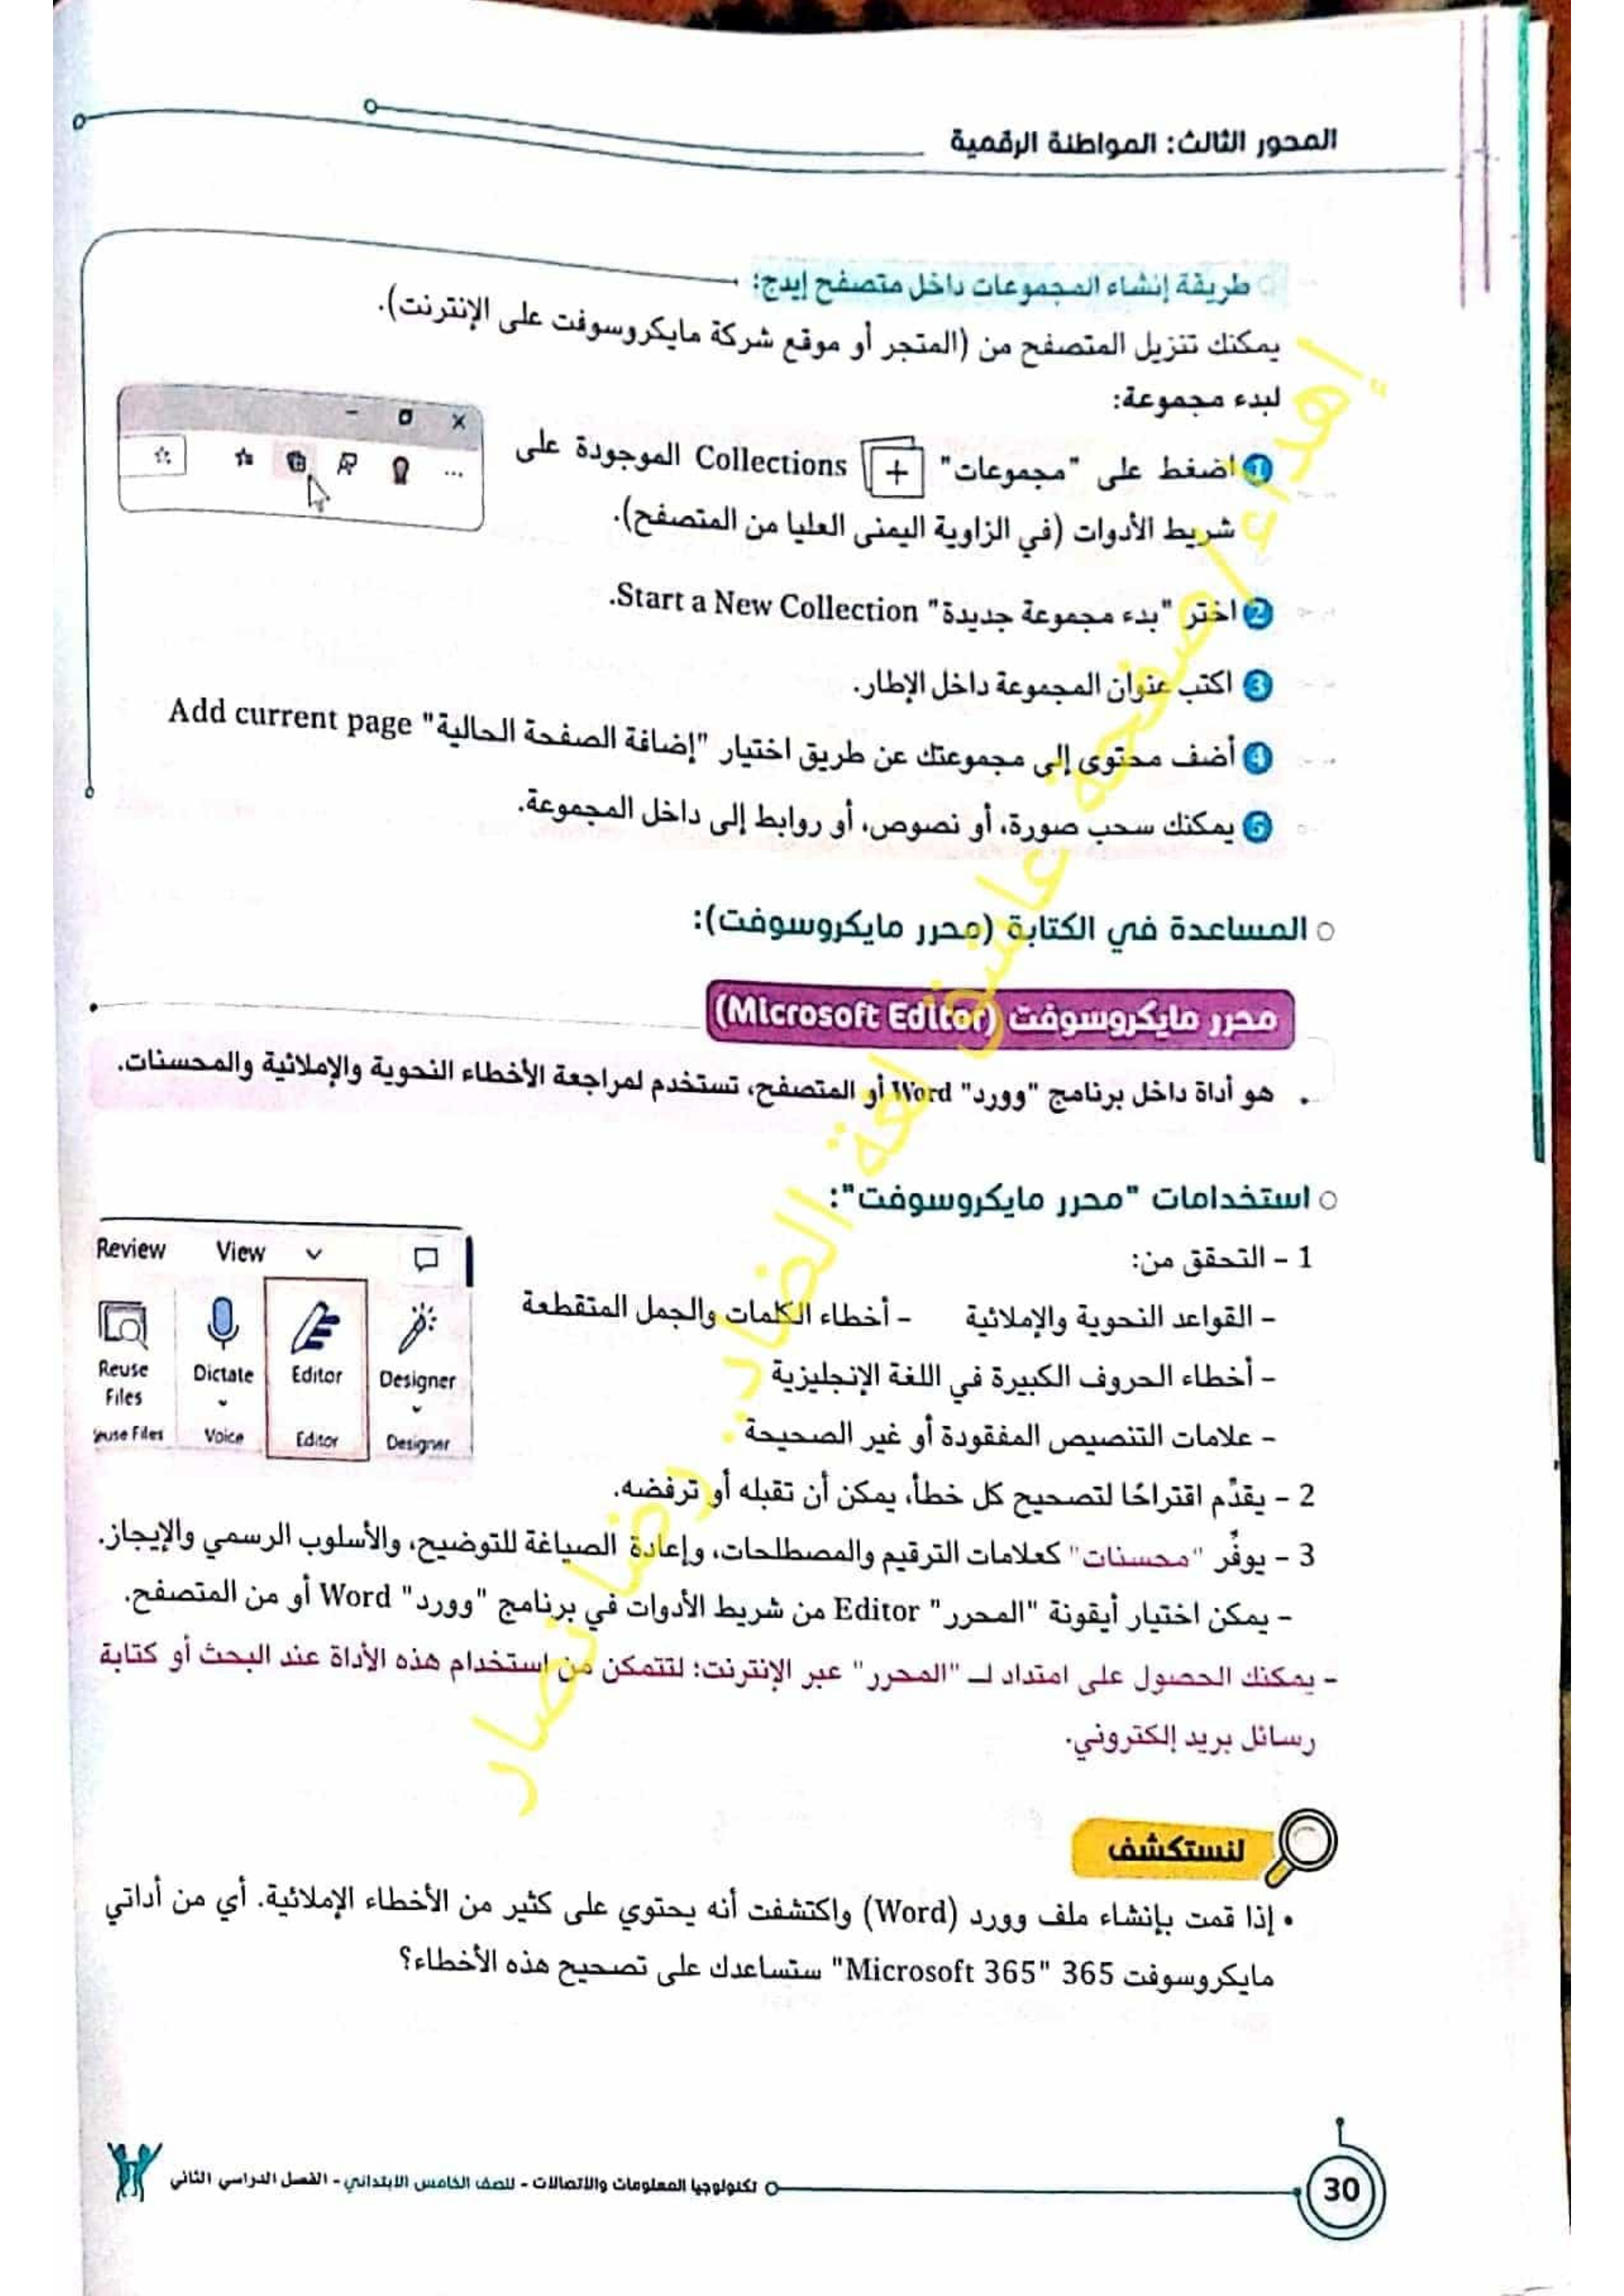 المحور الثالث: المواطنة الرقمية
طريقة إنشاء المجموعات داخل متصفح إيدج:
يمكنك تنزيل المتصفح من (المتجر أو موقع شركة مايكروسوفت على الإنترنت).
لبدء مجموعة:
1 اضغط على "مجموعات" Collections الموجودة على
شريط الأدوات (في الزاوية اليمنى العليا من المتصفح).
2 اختر "بدء مجموعة جديدة" Start a New Collection.
3 اكتب عنوان المجموعة داخل الإطار.
4 أضف محتوى إلى مجموعتك عن طريق اختيار "إضافة الصفحة الحالية" Add current page
5 يمكنك سحب صورة، أو نصوص، أو روابط إلى داخل المجموعة.
المساعدة في الكتابة (محرر مايكروسوفت):
محرر مايكروسوفت (Microsoft Editor)
هو أداة داخل برنامج "وورد" Word أو المتصفح، تستخدم لمراجعة الأخطاء النحوية والإملائية والمحسنات.
استخدامات "محرر مايكروسوفت":
1 - التحقق من:
- القواعد النحوية والإملائية - أخطاء الكلمات والجمل المتقطعة
- أخطاء الحروف الكبيرة في اللغة الإنجليزية
- علامات التنصيص المفقودة أو غير الصحيحة
Review View
Reuse Files Dictate Editor Designer
euse Files Voice Editor Designer
2 - يقدِّم اقتراحًا لتصحيح كل خطأ، يمكن أن تقبله أو ترفضه.
3 - يوفِّر "محسنات" كعلامات الترقيم والمصطلحات، وإعادة الصياغة للتوضيح، والأسلوب الرسمي والإيجاز.
- يمكن اختيار أيقونة "المحرر" Editor من شريط الأدوات في برنامج "وورد" Word أو من المتصفح.
- يمكنك الحصول على امتداد لـ "المحرر" عبر الإنترنت؛ لتتمكن من استخدام هذه الأداة عند البحث أو كتابة
رسائل بريد إلكتروني.
لنستكشف
• إذا قمت بإنشاء ملف وورد (Word) واكتشفت أنه يحتوي على كثير من الأخطاء الإملائية. أي من أداتي
مايكروسوفت 365 "Microsoft 365" ستساعدك على تصحيح هذه الأخطاء؟
30
تكنولوجيا المعلومات والاتصالات - للصف الخامس الابتدائي - الفصل الدراسي الثاني
إهداء/صفحة عاشق لغة الضاد. رضا نصار